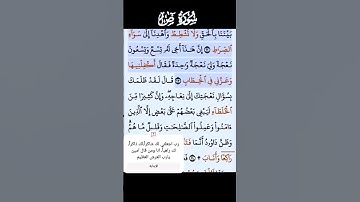 سورة ص
بَيْنَنَا بِالْحَقِّ وَلَا تُشْطِطْ وَاهْدِنَا إِلَىٰ سَوَاءِ
الصِّرَاطِ ۝ إِنَّ هَٰذَا أَخِي لَهُ تِسْعٌ وَتِسْعُونَ
نَعْجَةً وَلِيَ نَعْجَةٌ وَاحِدَةٌ فَقَالَ أَكْفِلْنِيهَا
وَعَزَّنِي فِي الْخِطَابِ ۝ قَالَ لَقَدْ ظَلَمَكَ
بِسُؤَالِ نَعْجَتِكَ إِلَىٰ نِعَاجِهِ وَإِنَّ كَثِيرًا مِنَ
الْخُلَطَاءِ لَيَبْغِي بَعْضُهُمْ عَلَىٰ بَعْضٍ إِلَّا الَّذِينَ
ءَامَنُوا وَعَمِلُوا الصَّالِحَاتِ وَقَلِيلٌ مَا هُمْ
وَظَنَّ دَاوُودُ أَنَّمَا
رَاكِعًا وَأَنَابَ
رب اجعلني لك شاكرا لك ذاكرا
ومن قال امين
يارب العرش العظيم